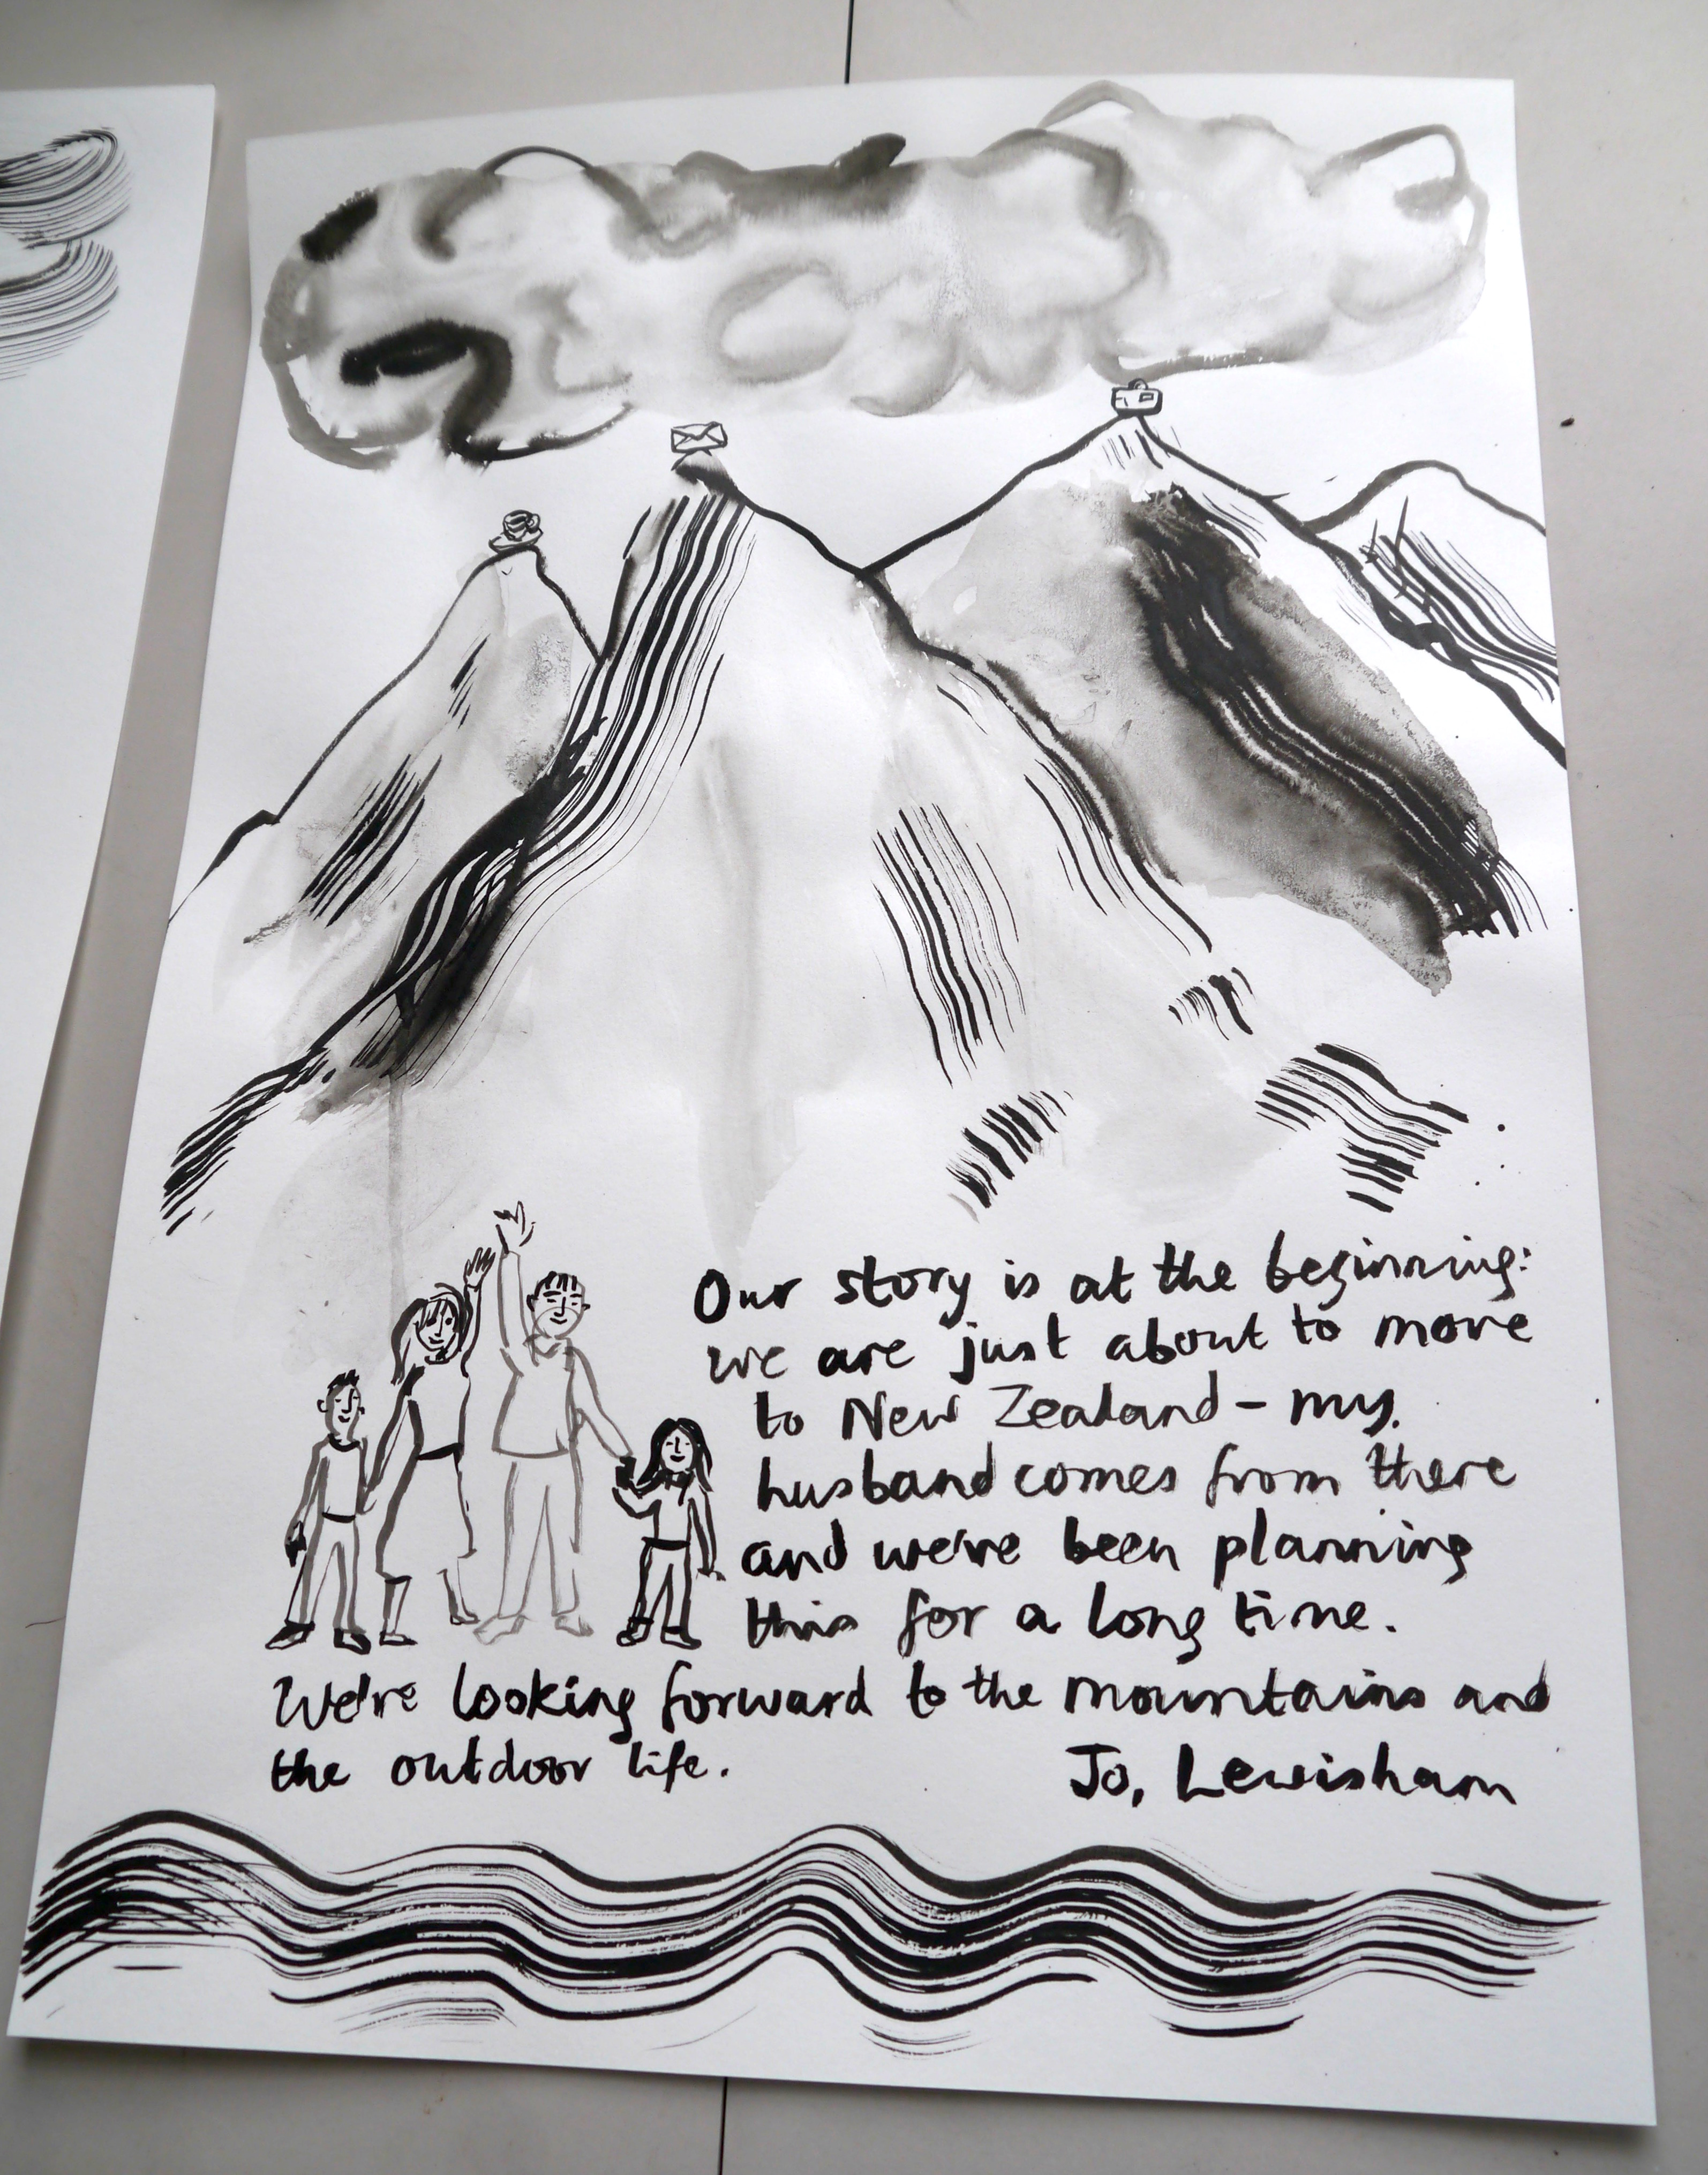 Our story is at the beginning:
we are just about to move
to New Zealand - my
husband comes from there
and we've been planning
this for a long time.
We're looking forward to the mountains and
the outdoor life.
Jo, Lewisham